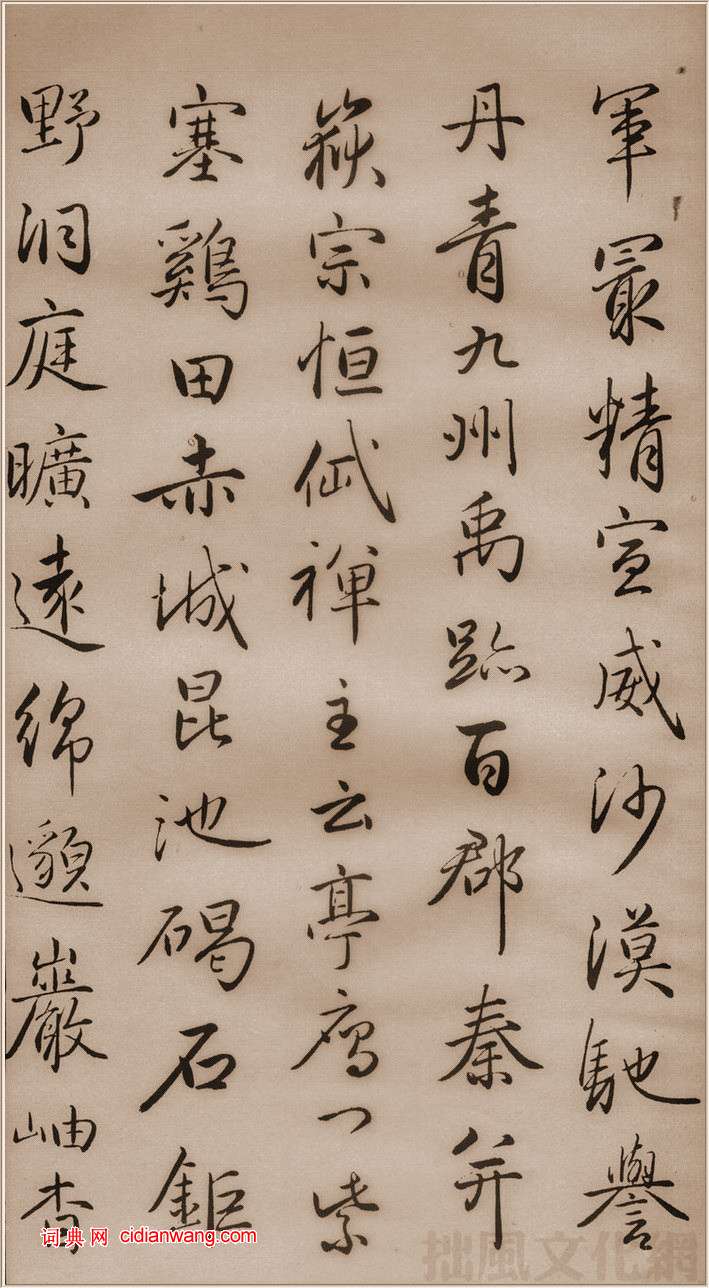 軍冣精宣威沙漠馳譽
丹青九州禹跡百郡秦并
嶽宗恒岱禪主云亭鴈門紫
塞鷄田赤城昆池碣石鉅
野洞庭曠遠綿邈巖岫杳
词典网 cidianwang.com
拙風文化網